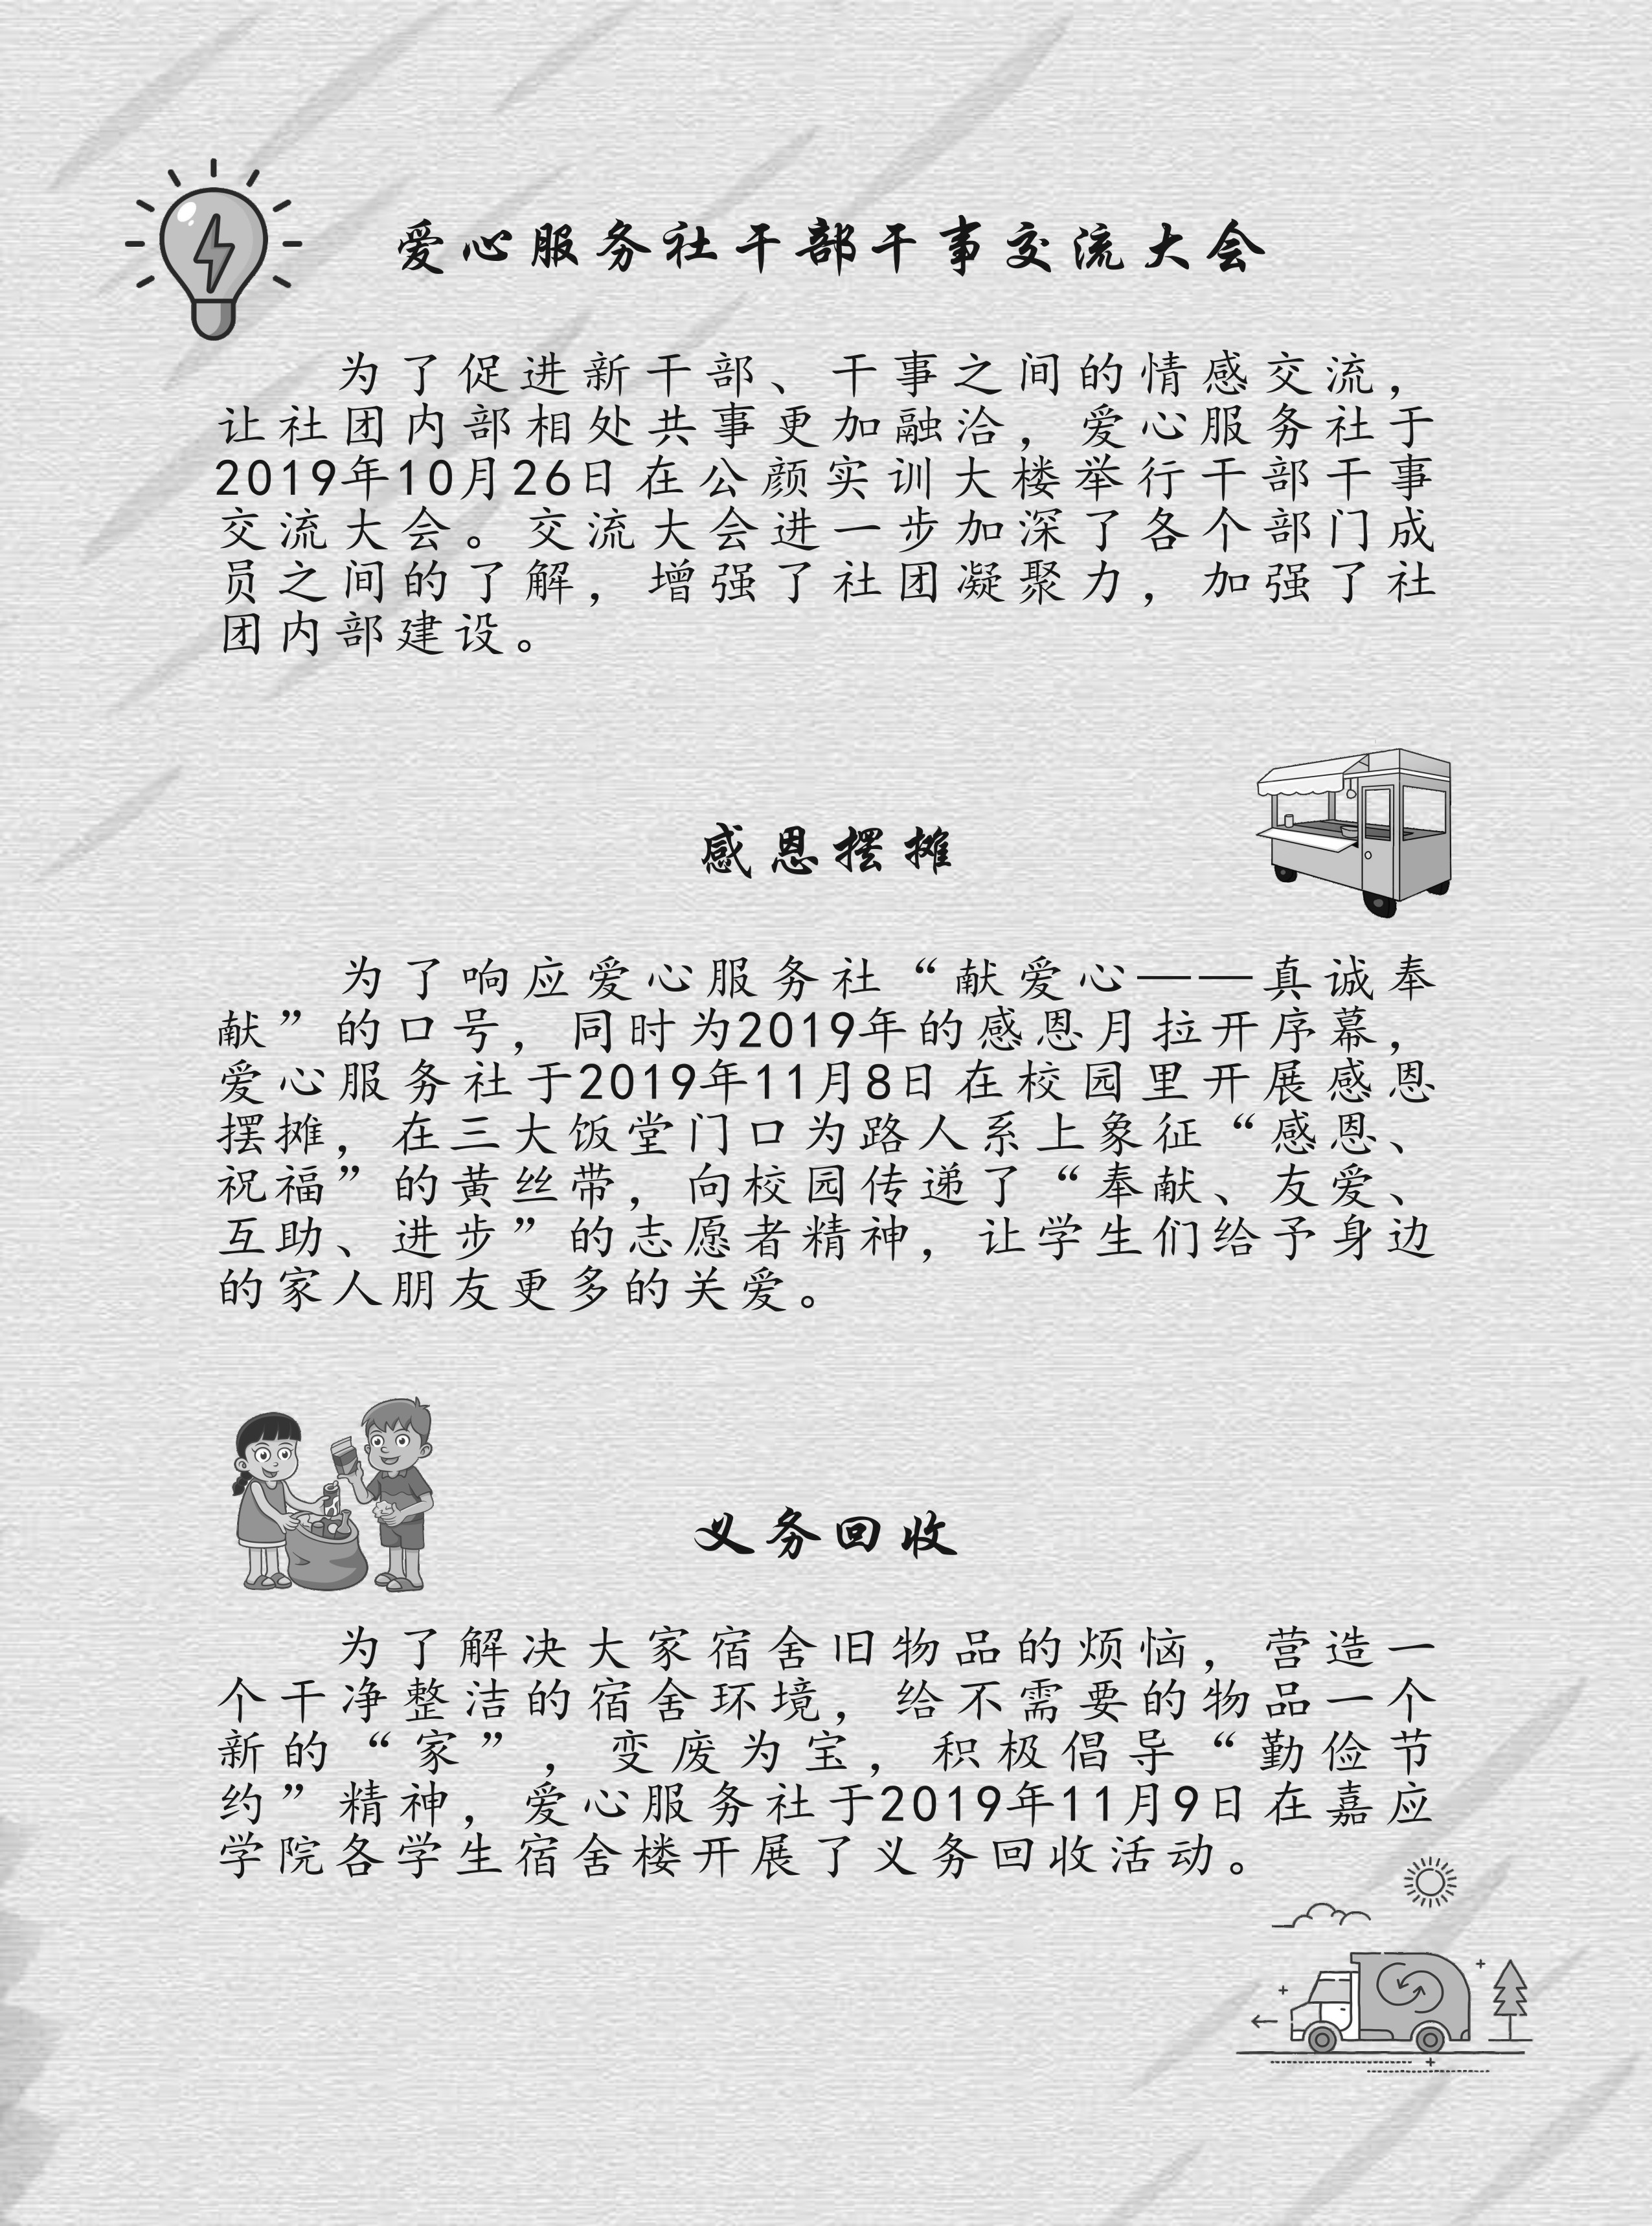 爱心服务社干部干事交流大会
为了促进新干部、干事之间的情感交流，
让社团内部相处共事更加融洽，爱心服务社于
2019年10月26日在公颜实训大楼举行干部干事
交流大会。交流大会进一步加深了各个部门成
员之间的了解，增强了社团凝聚力，加强了社
团内部建设。
感恩摆摊
为了响应爱心服务社“献爱心——真诚奉
献”的口号，同时为2019年的感恩月拉开序幕，
爱心服务社于2019年11月8日在校园里开展感恩
摆摊，在三大饭堂门口为路人系上象征“感恩、
祝福”的黄丝带，向校园传递了“奉献、友爱、
互助、进步”的志愿者精神，让学生们给予身边
的家人朋友更多的关爱。
义务回收
为了解决大家宿舍旧物品的烦恼，营造一
个干净整洁的宿舍环境，给不需要的物品一个
新的“家”，变废为宝，积极倡导“勤俭节
约”精神，爱心服务社于2019年11月9日在嘉应
学院各学生宿舍楼开展了义务回收活动。